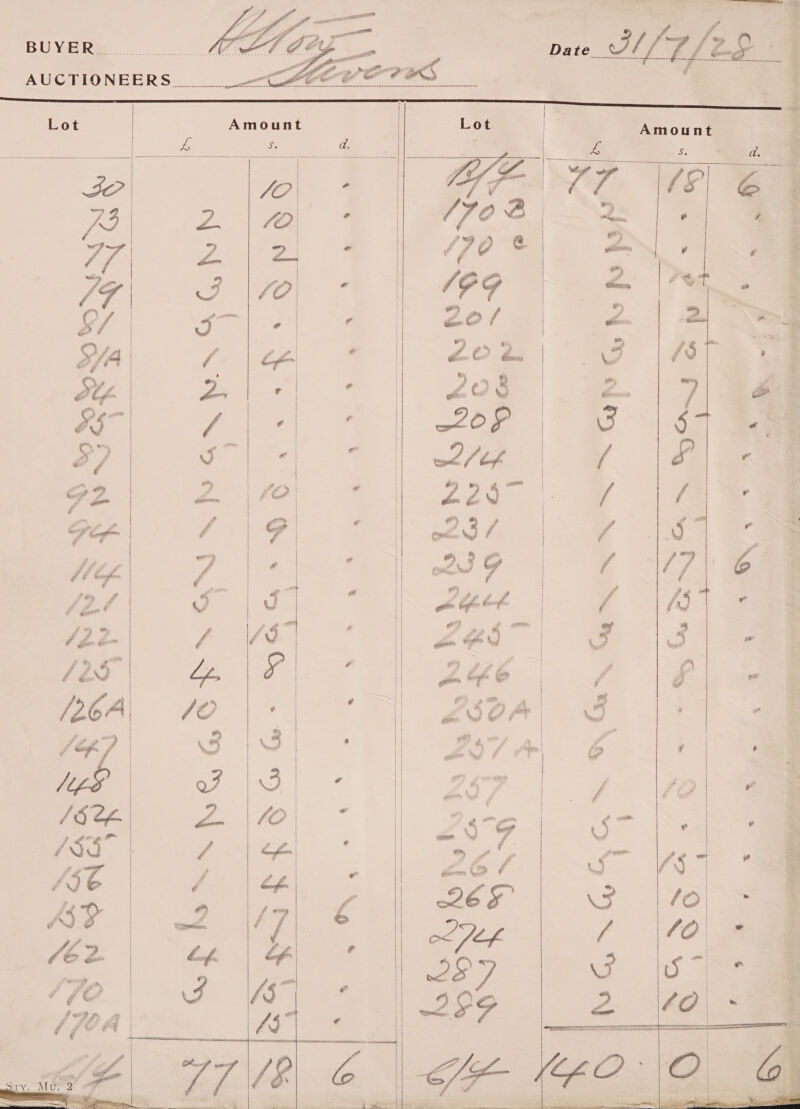 BUYER
Date 31/7/28
AUCTIONEERS Stevens
Lot Amount
£ s. d.
30 10 "
73 2 10 "
77 2 2 "
79 3 10 "
81 5 " "
81A 1 4 "
84 2 " "
85 1 " "
87 5 " "
92 2 10
94 1 9
114 7 " "
121 5 5 "
122 1 15 "
125 4 8 "
126A 10 " "
147 3 3 "
148 3 3 "
154 2 10 "
155 1 4 "
156 1 4 "
158 2 17 6
162 4 4 "
170 3 15 "
170A 15 "
C/f 77 18 6
Sty. Mu. 2
Lot Amount
£ s. d.
B/f 77 18 6
170B 2 " "
170C 2 " "
199 2 15 "
201 2 2 "
202 3 15 "
203 2 7 6
208 3 5 "
214 1 8 "
225 1 1 "
231 1 5 "
239 1 17 6
244 1 15 "
245 3 3 "
246 1 8 "
250A 3 " "
257A 6 " "
257 1 10 "
259 5 " "
261 5 15 "
268 3 10 "
274 1 10 "
287 3 5 "
289 2 10 "
C/f 140 0 6